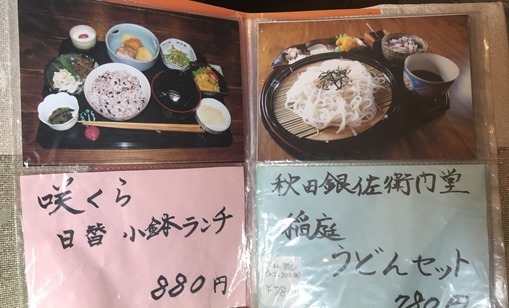 咲くら
日替 小鉢ランチ
880円
秋田銀佐衛門堂
稲庭
うどんセット
780円